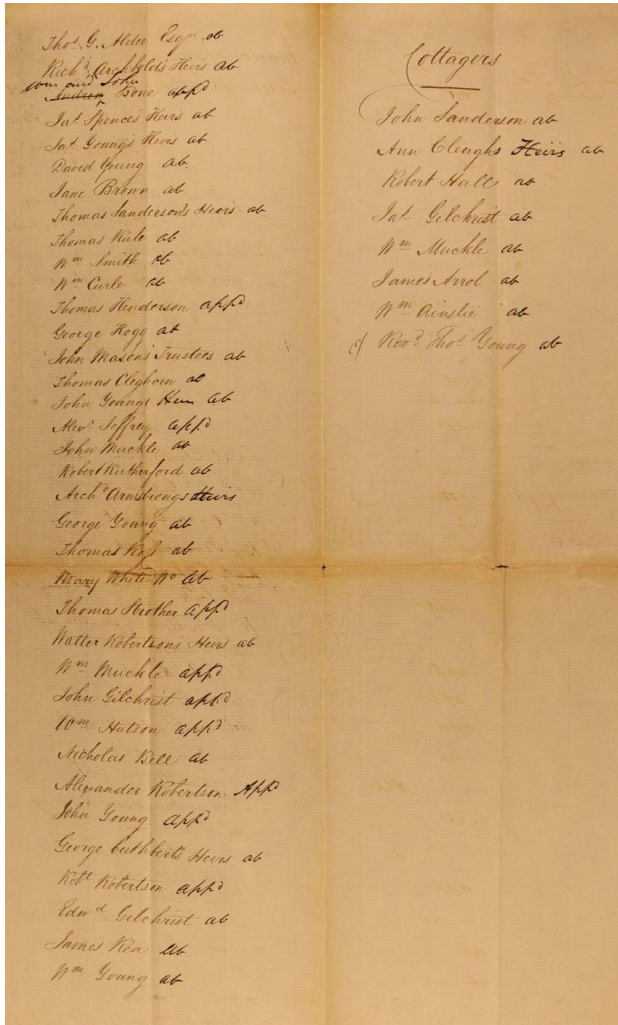 Thos. G. Alder Esqr. ab
Richd. Archbold's Heirs ab
Wm and John
Andrew Bone appd
Jas. Spence's Heirs ab
Jas. Young's Heirs ab
David Young ab
Jane Brown ab
Thomas Sanderson's Heirs ab
Thomas Rule ab
Wm Smith ab
Wm Curle ab
Thomas Henderson appd
George Hogg ab
John Mason's Trustees ab
Thomas Cleghorn ab
John Youngs ab
Alexr. Jeffrey appd
John Muckle ab
Robert Rutherford ab
Archd Armstrongs Heirs
George Young ab
Thomas ab
Mary White ab
Thomas Strother appd
Walter Robertson's Heirs ab
Wm Muckle appd
John Gilchrist appd
Wm Hutson appd
Nicholas Bell ab
Alexander Robertson Appd
John Young appd
George Cuthbert's Heirs ab
Robt. Robertson appd
Edwd Gilchrist ab
James Rea ab
Wm Young ab
Cottagers
John Sanderson ab
Ann Cleughs Heirs ab
Robert Hall ab
Jas. Gilchrist ab
Wm Muckle ab
James Arrol ab
Wm Ainslie ab
Revd. Thos. Young ab